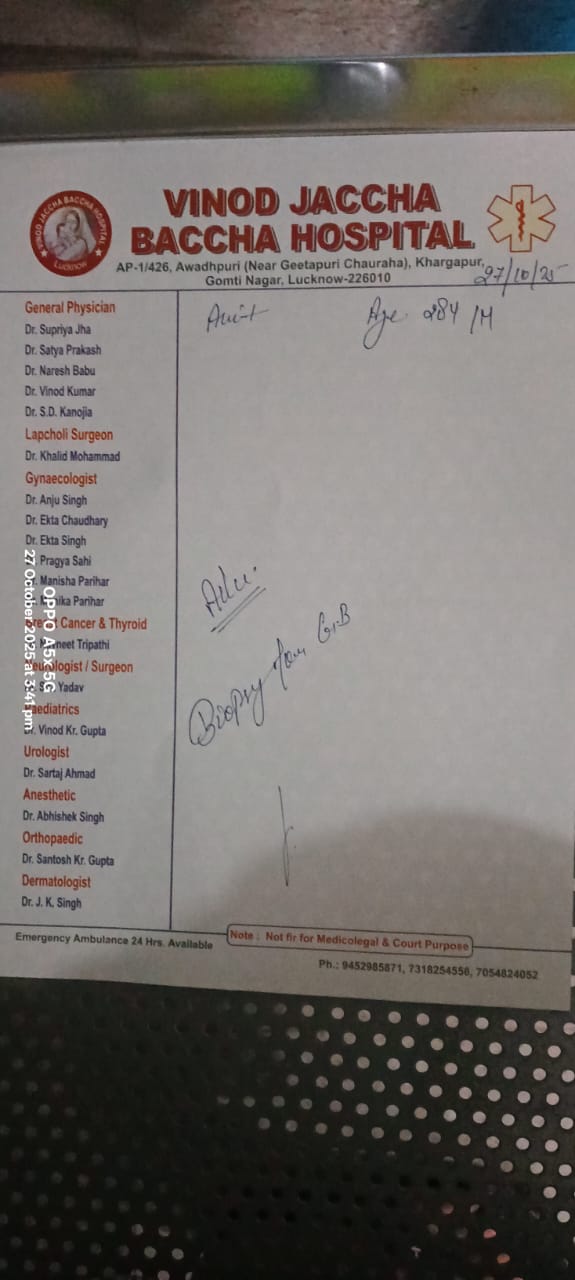 VINOD JACCHA BACCHA HOSPITAL
LUCKNOW
VINOD JACCHA
BACCHA HOSPITAL
AP-1/426, Awadhpuri (Near Geetapuri Chauraha), Khargapur,
Gomti Nagar, Lucknow-226010
27/10/25
Age 28Y /M
General Physician
Dr. Supriya Jha
Dr. Satya Prakash
Dr. Naresh Babu
Dr. Vinod Kumar
Dr. S.D. Kanojia
Lapcholi Surgeon
Dr. Khalid Mohammad
Gynaecologist
Dr. Anju Singh
Dr. Ekta Chaudhary
Dr. Ekta Singh
Pragya Sahi
Manisha Parihar
Parihar
Cancer & Thyroid
Tripathi
/ Surgeon
Yadav
Vinod Kr. Gupta
Urologist
Dr. Sartaj Ahmad
Anesthetic
Dr. Abhishek Singh
Orthopaedic
Dr. Santosh Kr. Gupta
Dermatologist
Dr. J. K. Singh
Adv.
Biopsy for G.B
Emergency Ambulance 24 Hrs. Available
Note : Not fir for Medicolegal & Court Purpose
Ph.: 9452985871, 7318254556, 7054824052
OPPO A5x5G
27 October 2025 at 3:41 pm